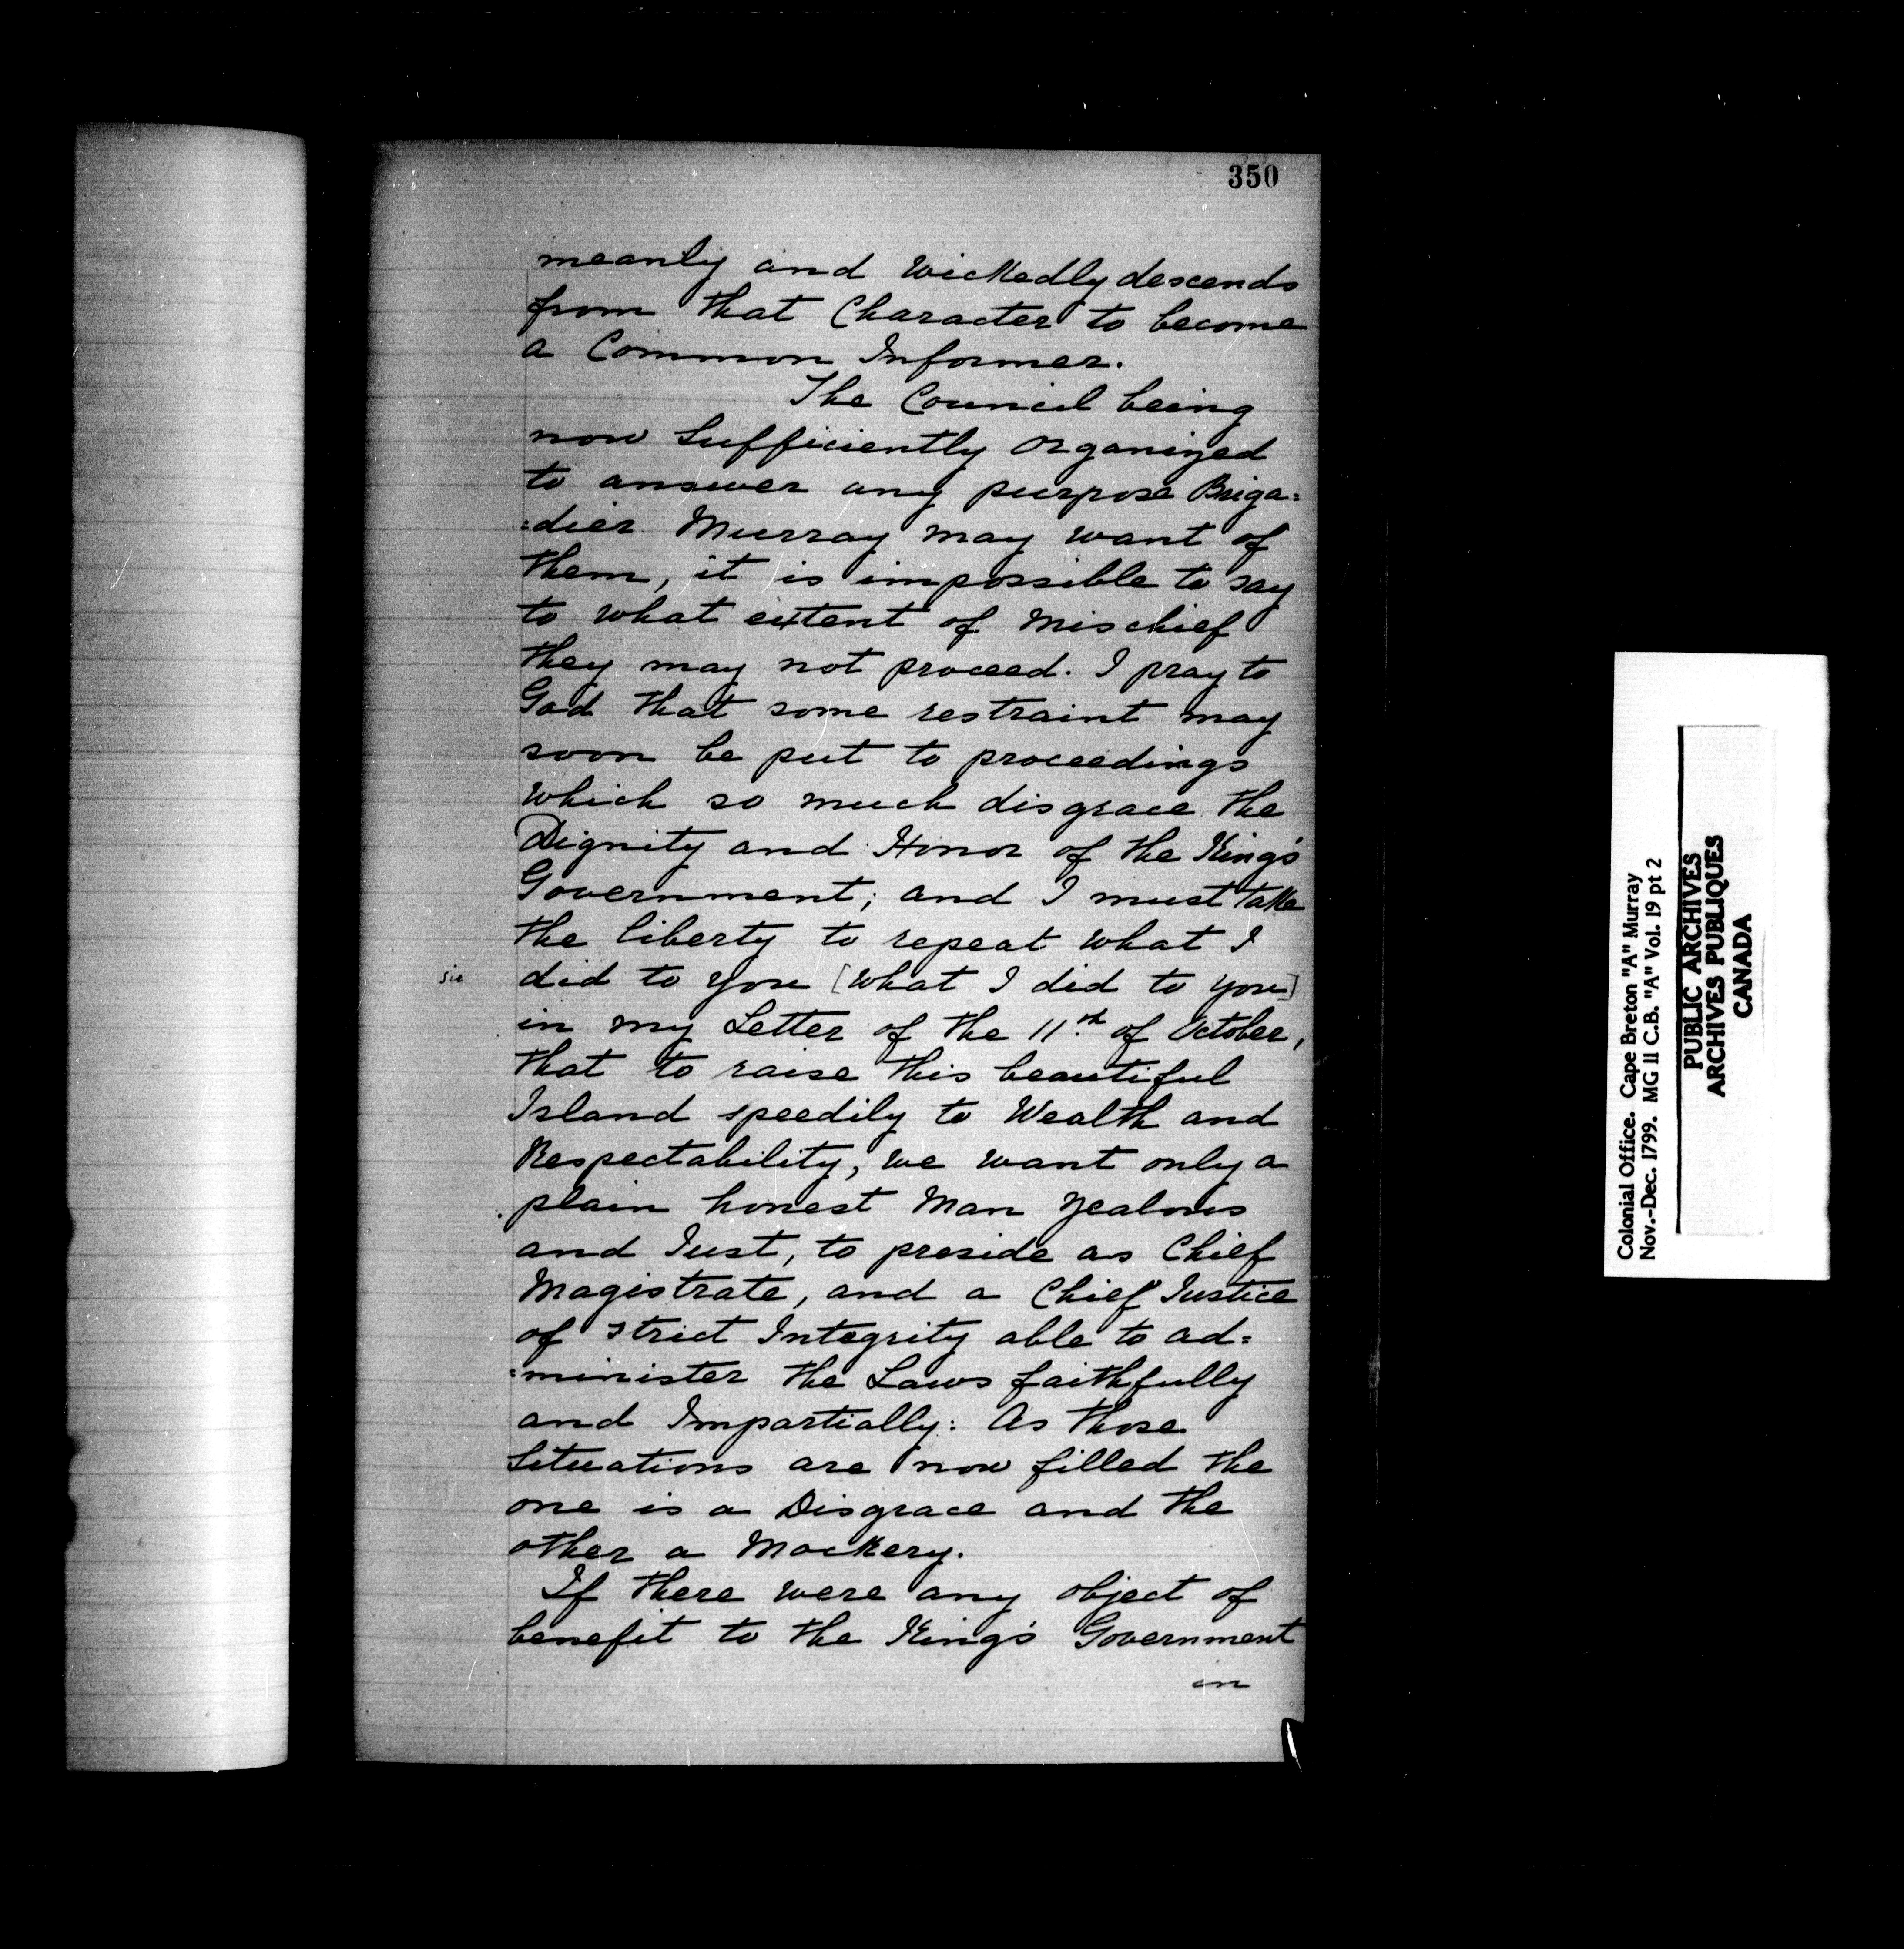 350
meanly and wickedly descends
from that Character to become
a Common Informer.
The Council being
now Sufficiently organized
to answer any purpose Briga=
=dier Murray may want of
them, it is impossible to say
to what extent of Mischief
they may not proceed. I pray to
God that some restraint may
soon be put to proceedings
which so much disgrace the
Dignity and Honor of the King's
Government; and I must take
the liberty to repeat what I
sic did to you [what I did to you]
in my Letter of the 11th of October,
that to raise this beautiful
Island speedily to Wealth and
Respectability, we want only a
plain honest Man zealous
and Just, to preside as Chief
Magistrate, and a Chief Justice
of strict Integrity able to ad=
=minister the Laws faithfully
and Impartially: As those
Situations are now filled the
one is a Disgrace and the
other a Mockery.
If there were any object of
benefit to the King's Government
in
Colonial Office. Cape Breton "A" Murray
Nov.-Dec. 1799. MG 11 C.B. "A" Vol. 19 pt 2
PUBLIC ARCHIVES
ARCHIVES PUBLIQUES
CANADA